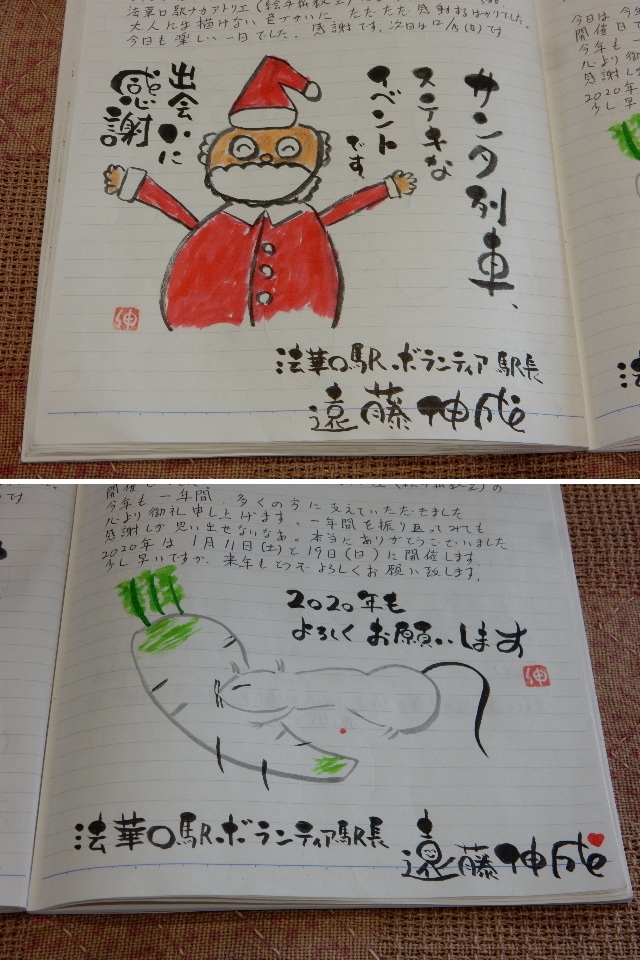 法華口駅ナカアトリエ(絵手紙教室)
大人には描けない色づかいに ただただ 感謝するばかりでした。
今日も楽しい一日でした。感謝です。次回は12/15(日)です
サンタ列車、
ステキな
イベント
です。
出会いに
感謝
伸
法華口駅ボランティア駅長
遠藤伸成
今日は今年
開催日で
今年も一
心より御礼
感謝し
2020年
少し早
開催
今年も一年間、多くの方に支えていただきました
心より御礼申し上げます。一年間を振り返ってみても
感謝しか思い出せないなあ。本当にありがとうございました
2020年は1月11日(土)と19日(日)に開催します。
少し早いですが、来年もどうぞよろしくお願い致します。
2020年も
よろしくお願いします
伸
法華口駅ボランティア駅長
遠藤伸成